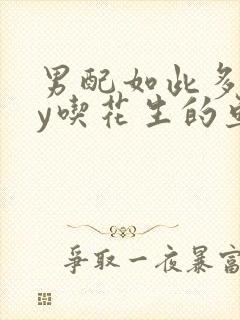 男配如此多
y喫花生的
爭取一夜暴富